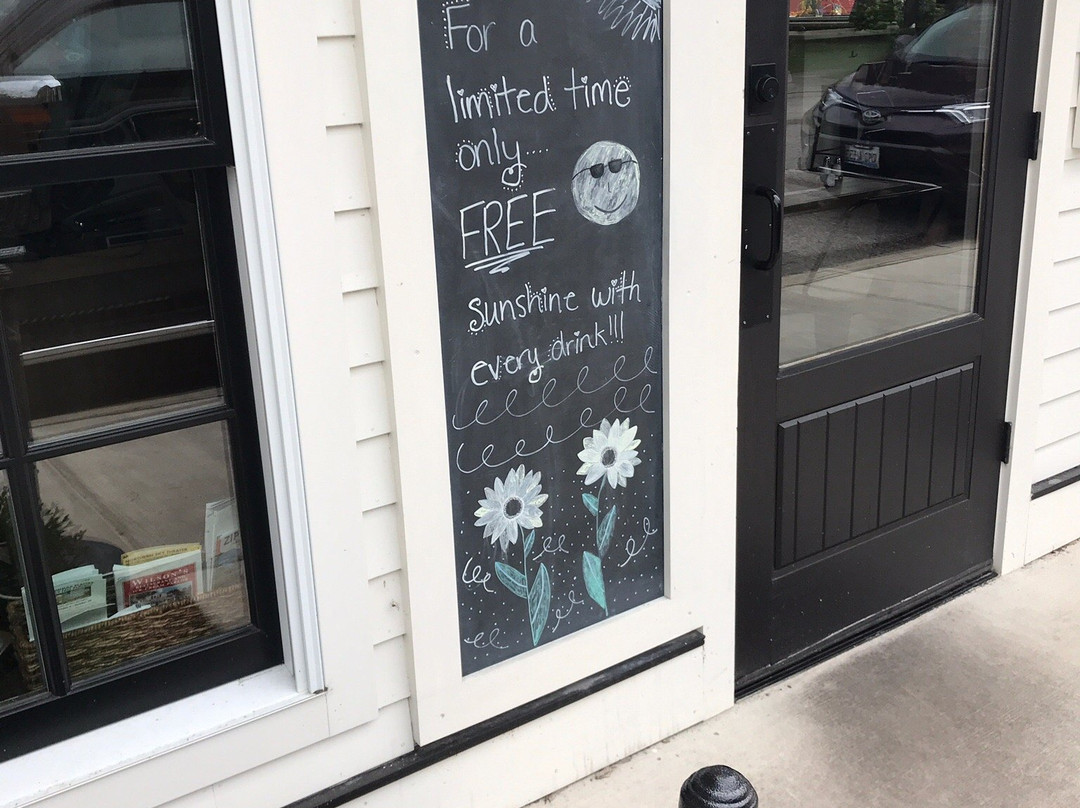 For a
limited time
only....
FREE
sunshine with
every drink!!!
WILSON'S
ZIP